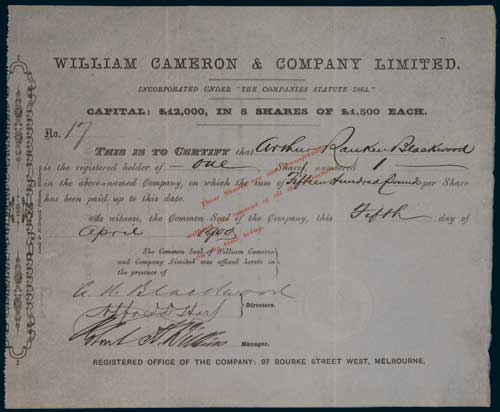 WILLIAM CAMERON & COMPANY LIMITED.
INCORPORATED UNDER "THE COMPANIES STATUTE 1864."
CAPITAL: £12,000, IN 8 SHARES OF £1,500 EACH.
No. 17
THIS IS TO CERTIFY that Arthur Ranken Blackwood
is the registered holder of one Share numbered 1
in the above-named Company, on which the sum of Fifteen Hundred Pounds per Share
has been paid up to this date.
As witness, the Common Seal of the Company, this Fifth day of
April 1900
The Common Seal of William Cameron
and Company Limited was affixed hereto in
the presence of
A. R. Blackwood
Directors.
Manager.
REGISTERED OFFICE OF THE COMPANY: 97 BOURKE STREET WEST, MELBOURNE.